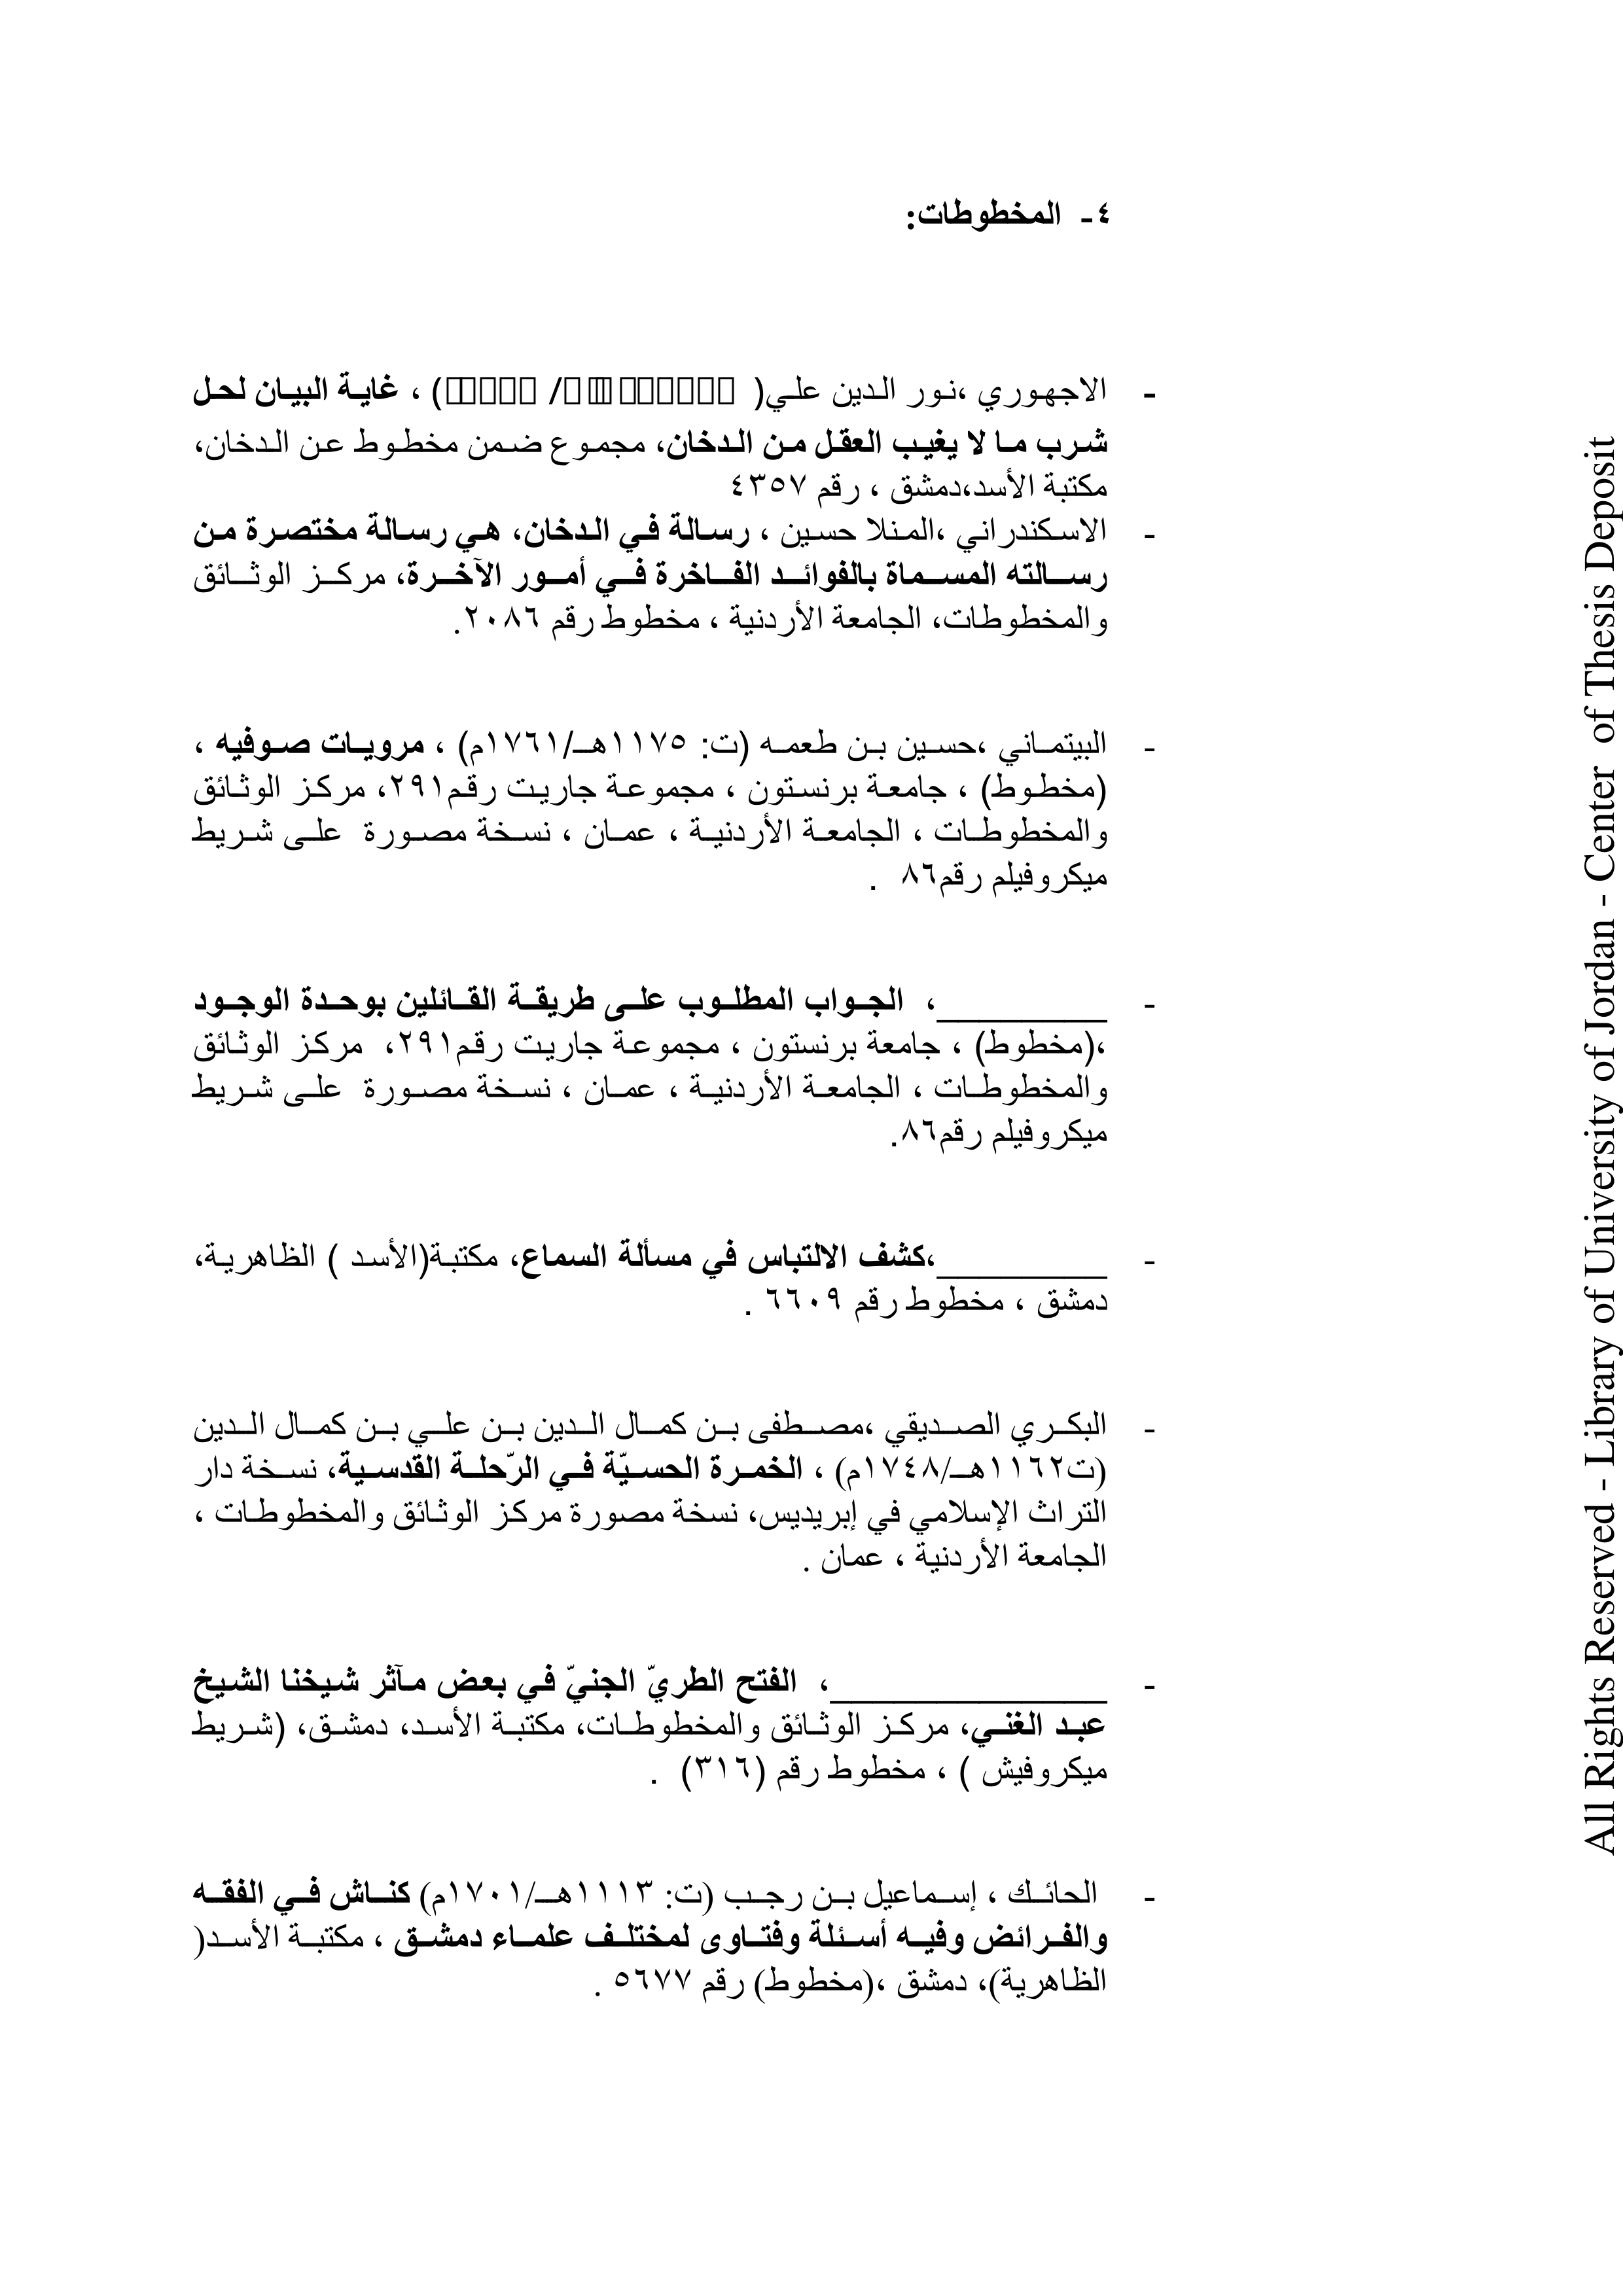 ٤- المخطوطات:
- الاجهوري ،نور الدين علي( /) ، غاية البيان لحل
شرب ما لا يغيب العقل من الدخان، مجموع ضمن مخطوط عن الدخان،
مكتبة الأسد،دمشق ، رقم ٤٣٥٧
- الاسكندراني ،المنلا حسين ، رسالة في الدخان، هي رسالة مختصرة من
رسالته المسماة بالفوائد الفاخرة في أمور الآخرة، مركز الوثائق
والمخطوطات، الجامعة الأردنية ، مخطوط رقم ٢٠٨٦.
- البيتماني ،حسين بن طعمه (ت: ١١٧٥هـ/١٧٦١م) ، مرويات صوفيه ،
(مخطوط) ، جامعة برنستون ، مجموعة جاريت رقم٢٩١، مركز الوثائق
والمخطوطات ، الجامعة الأردنية ، عمان ، نسخة مصورة على شريط
ميكروفيلم رقم٨٦ .
- ________، الجواب المطلوب على طريقة القائلين بوحدة الوجود
،(مخطوط) ، جامعة برنستون ، مجموعة جاريت رقم٢٩١، مركز الوثائق
والمخطوطات ، الجامعة الأردنية ، عمان ، نسخة مصورة على شريط
ميكروفيلم رقم٨٦.
- ________،كشف الالتباس في مسألة السماع، مكتبة(الأسد ) الظاهرية،
دمشق ، مخطوط رقم ٦٦٠٩ .
- البكري الصديقي ،مصطفى بن كمال الدين بن علي بن كمال الدين
(ت١١٦٢هـ/١٧٤٨م) ، الخمرة الحسيّة في الرّحلة القدسية، نسخة دار
التراث الإسلامي في إبريديس، نسخة مصورة مركز الوثائق والمخطوطات ،
الجامعة الأردنية ، عمان .
- _____________، الفتح الطريّ الجنيّ في بعض مآثر شيخنا الشيخ
عبد الغني، مركز الوثائق والمخطوطات، مكتبة الأسد، دمشق، (شريط
ميكروفيش ) ، مخطوط رقم (٣١٦) .
- الحائك ، إسماعيل بن رجب (ت: ١١١٣هـ/١٧٠١م) كناش في الفقه
والفرائض وفيه أسئلة وفتاوى لمختلف علماء دمشق ، مكتبة الأسد(
الظاهرية)، دمشق ،(مخطوط) رقم ٥٦٧٧ .
All Rights Reserved - Library of University of Jordan - Center of Thesis Deposit